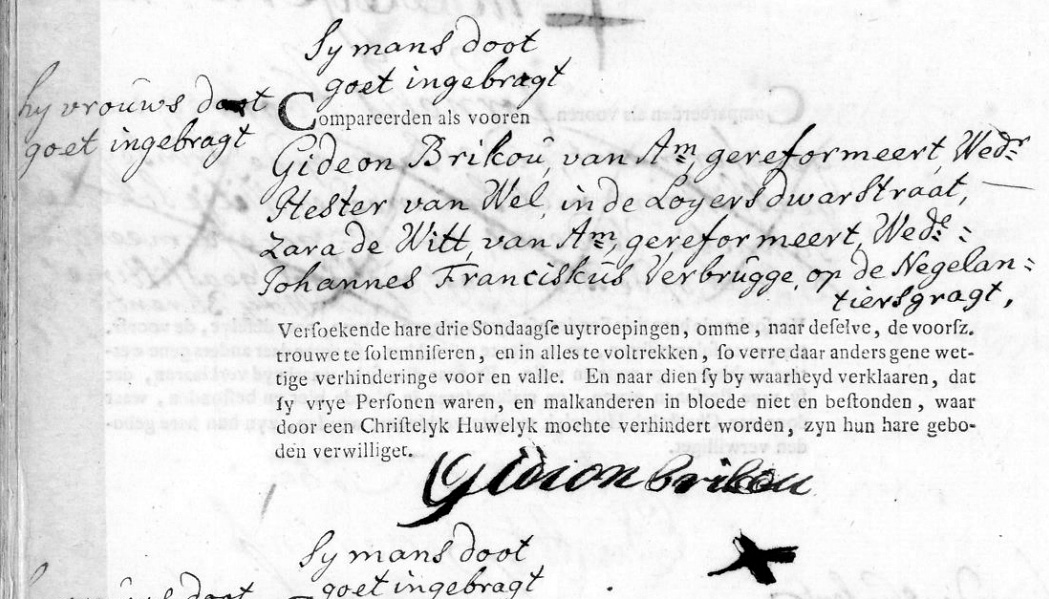 Sy mans doot
goet ingebragt
hy vrouws doot
goet ingebragt
Compareerden als vooren
Gideon Brikoû, van Am, gereformeert, Wedr
Hester van Wel, in de Loyersdwarstraat,
Zara de Witt, van Am, gereformeert, Wede =
Johannes Franciskûs Verbrûgge, op de Negelan=
tiersgragt,
Versoekende hare drie Sondaagse uytroepingen, omme, naar deselve, de voorsz.
trouwe te solemniseren, en in alles te voltrekken, so verre daar anders gene wet-
tige verhinderinge voor en valle. En naar dien sy by waarheyd verklaaren, dat
sy vrye Personen waren, en malkanderen in bloede niet en bestonden, waar
door een Christelyk Huwelyk mochte verhindert worden, zyn hun hare gebo-
den verwilliget.
Gidion brikou
Sy mans doot
goet ingebragt
doot